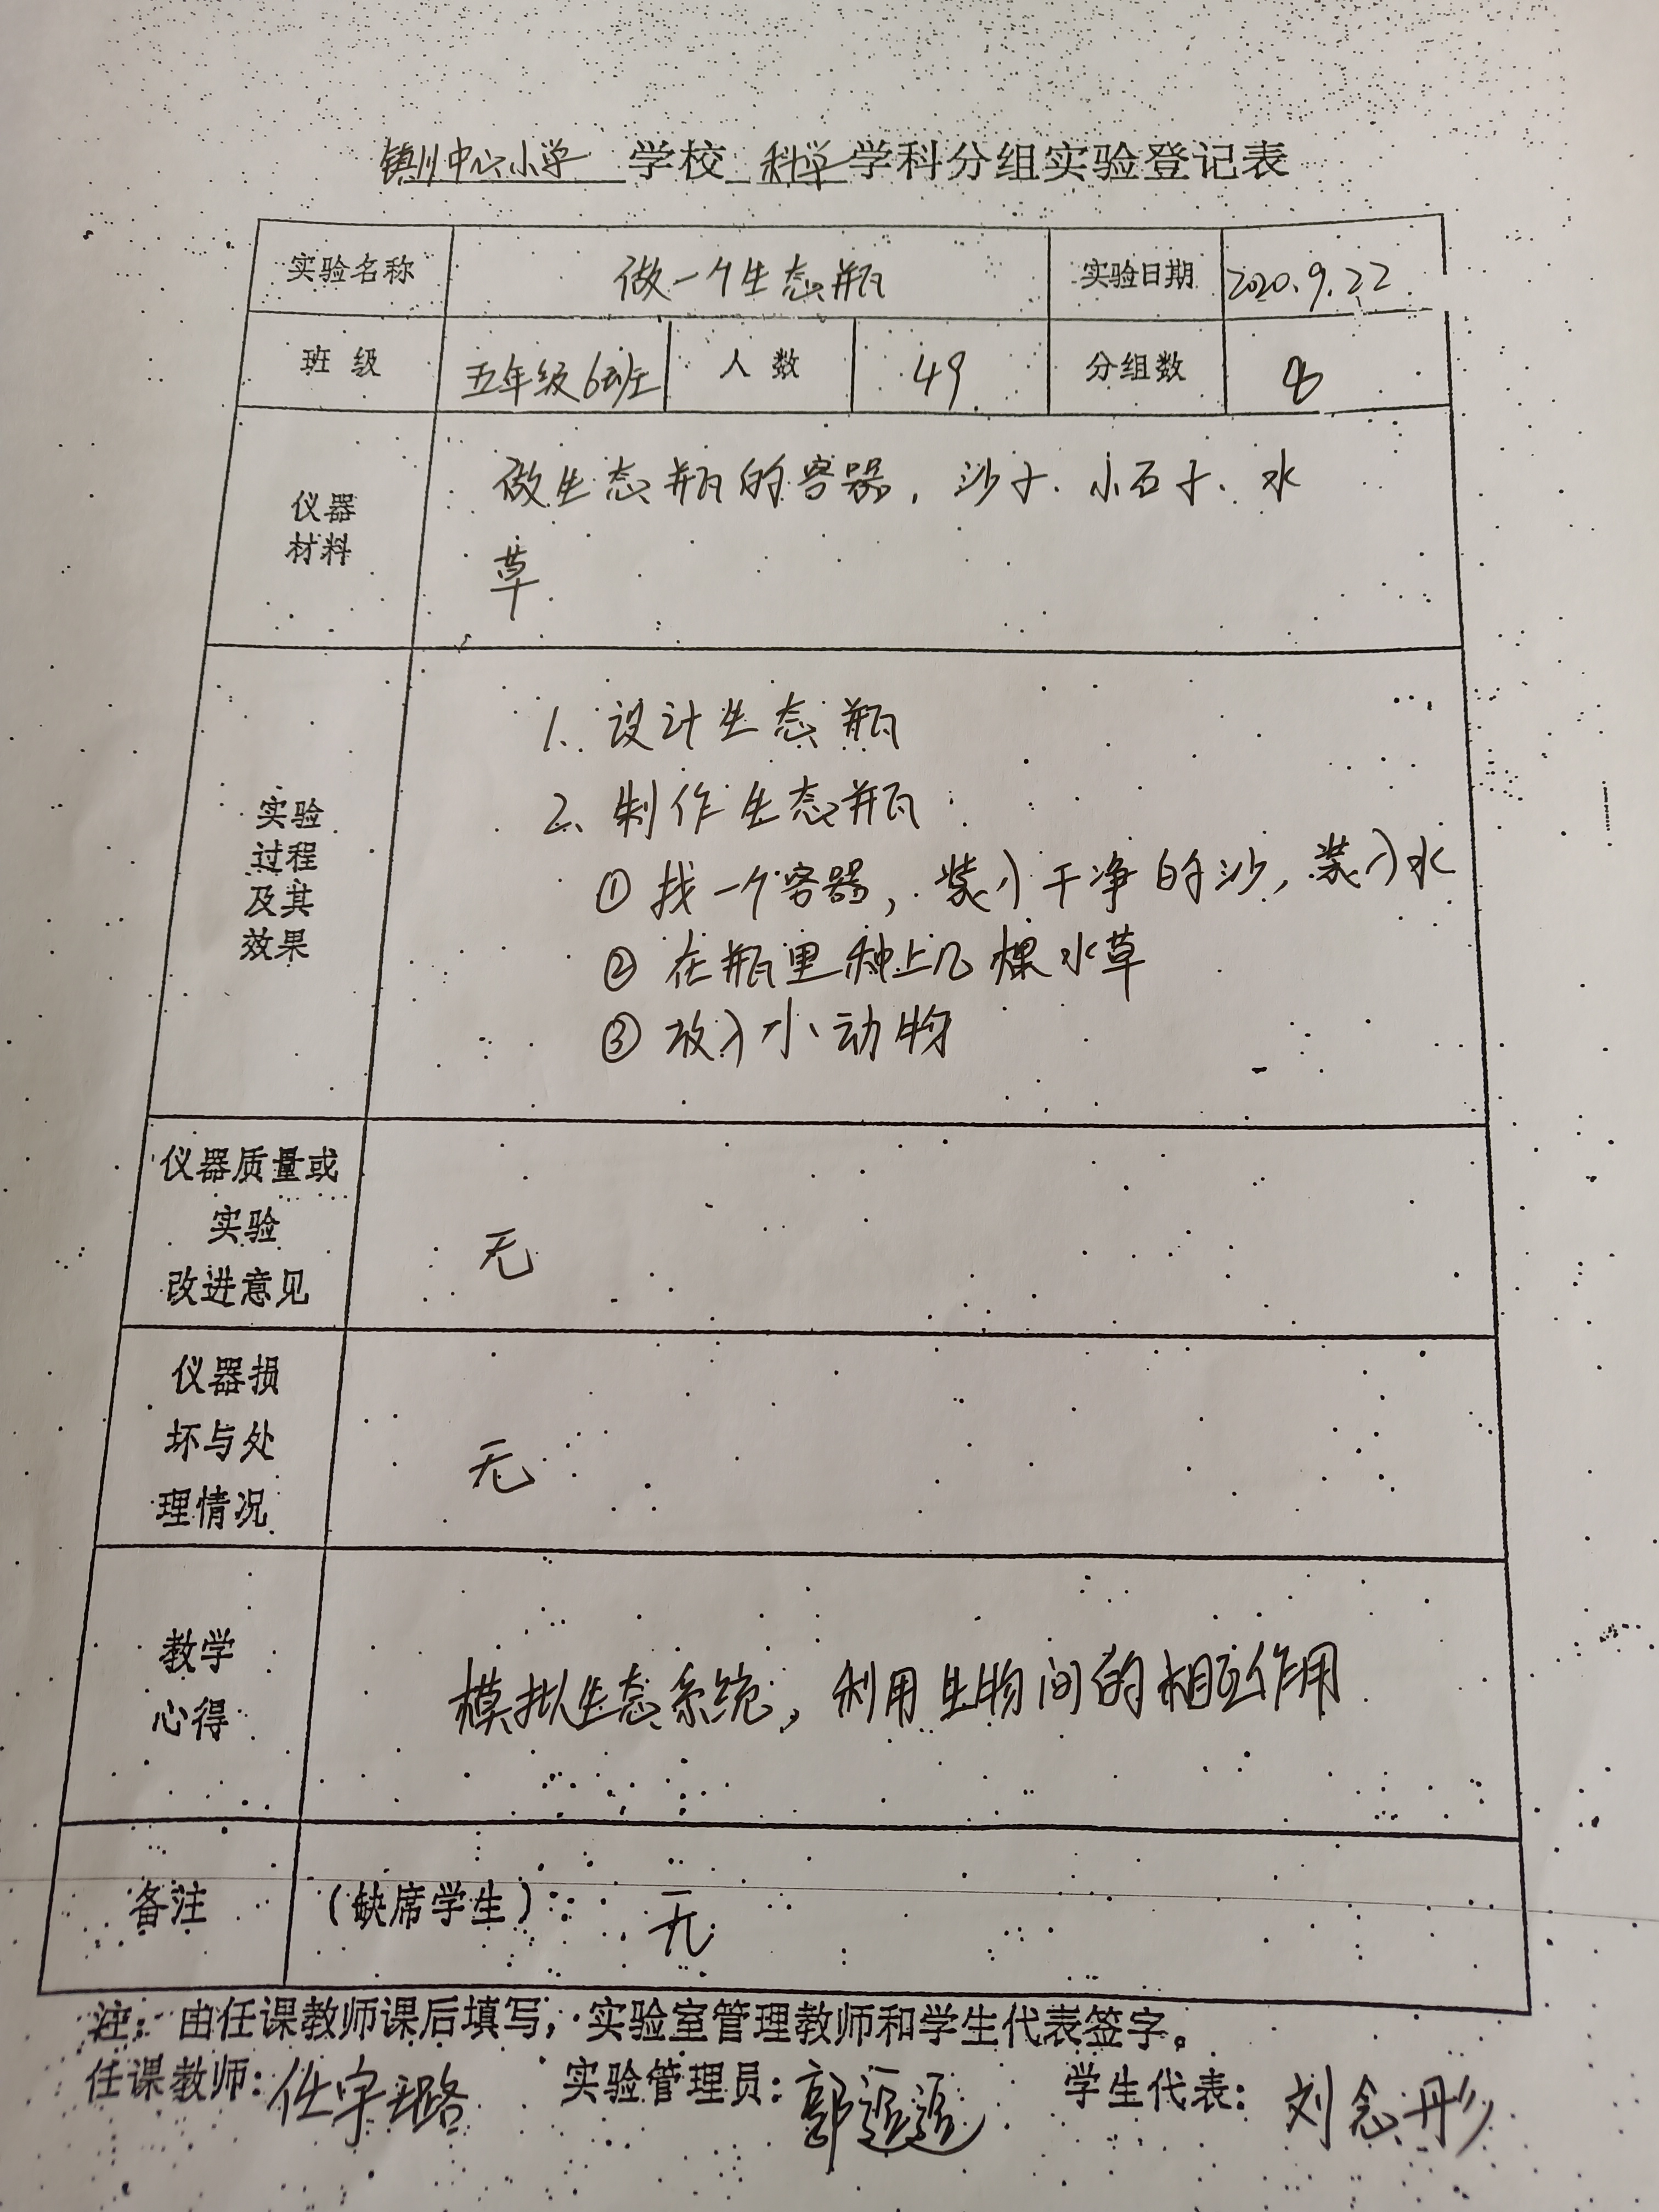 镇川中心小学 学校 科学 学科分组实验登记表
实验名称 做一个生态瓶 实验日期 2020.9.22
班 级 五年级6班 人 数 49 分组数 8
仪器
材料
做生态瓶的容器,沙子、小石子、水
草
实验
过程
及其
效果
1. 设计生态瓶
2、制作生态瓶:
① 找一个容器,装入干净的沙,装入水
② 在瓶里种上几棵水草
③ 放入小动物
仪器质量或
实验
改进意见
无
仪器损
坏与处
理情况
无
教学
心得
模拟生态系统,利用生物间的相互作用
备注 (缺席学生): 无
注:由任课教师课后填写,实验室管理教师和学生代表签字。
任课教师:任宇璐 实验管理员:郭 学生代表:刘念彤